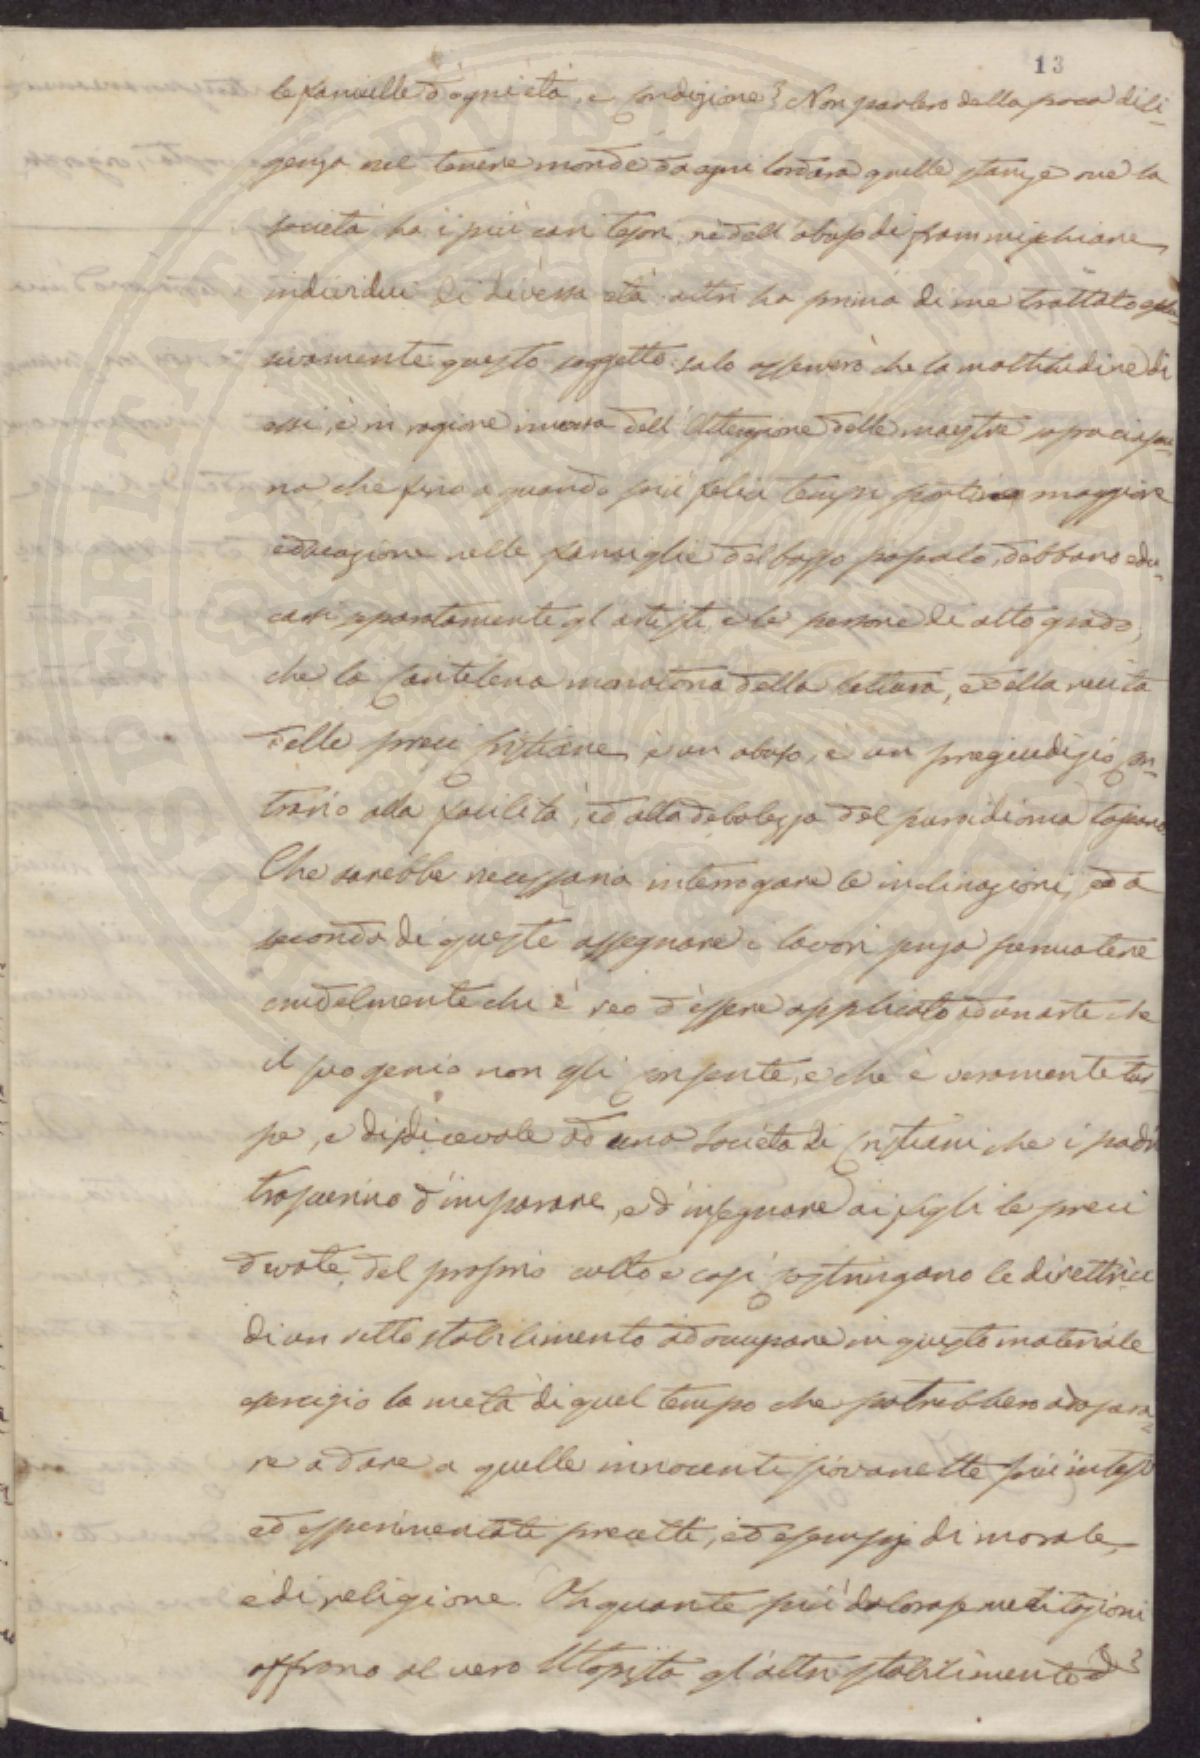 13
le fanciulle d'ogni età, e condizione? Non parlerò della poca dili-
genza nel tenere monde da ogni lordura quelle stanze ove la
società ha i più cari tesori, nè dell'abuso di frammischiare
individui di diversa età: altri ha prima di me trattato esten-
sivamente questo soggetto: solo osserverò che la moltitudine di
essi, è in ragione inversa dell'attenzione delle maestre sopra ciascu-
no che fino a quando più felici tempi portino maggiore
educazione nelle famiglie del basso popolo, debbano edu-
carsi appartamente gl'artisti e le persone di alto grado,
che la cantilena monotona della lettura, e della recita
delle preci cristiane, è un abuso, e un pregiudizio con-
trario alla facilità, ed alla dolcezza del puro idioma toscano
Che sarebbe necessario interrogare le inclinazioni, ed a
seconda di queste assegnare i lavori senza percuotere
crudelmente chi è reo d'essere applicato ad un arte che
il suo genio non gli consente, e che è veramente tur-
pe, e disdicevole ad una società di Cristiani che i padri
trascurino d'imparare, e d'insegnare ai figli le preci
devote del proprio culto e così costringano le direttrici
di un retto stabilimento ad occupare in questo materiale
esercizio la metà di quel tempo che potrebbero adopera-
re a dare a quelle innocenti giovanette più intesi
ed esperimentati precetti, ed esempj di morale,
e di religione. Oh quante più dolorose meditazioni
offrono al vero Utopista gl'altri stabilimenti d